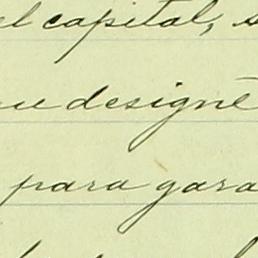 el capital, s
ue designe
para gara